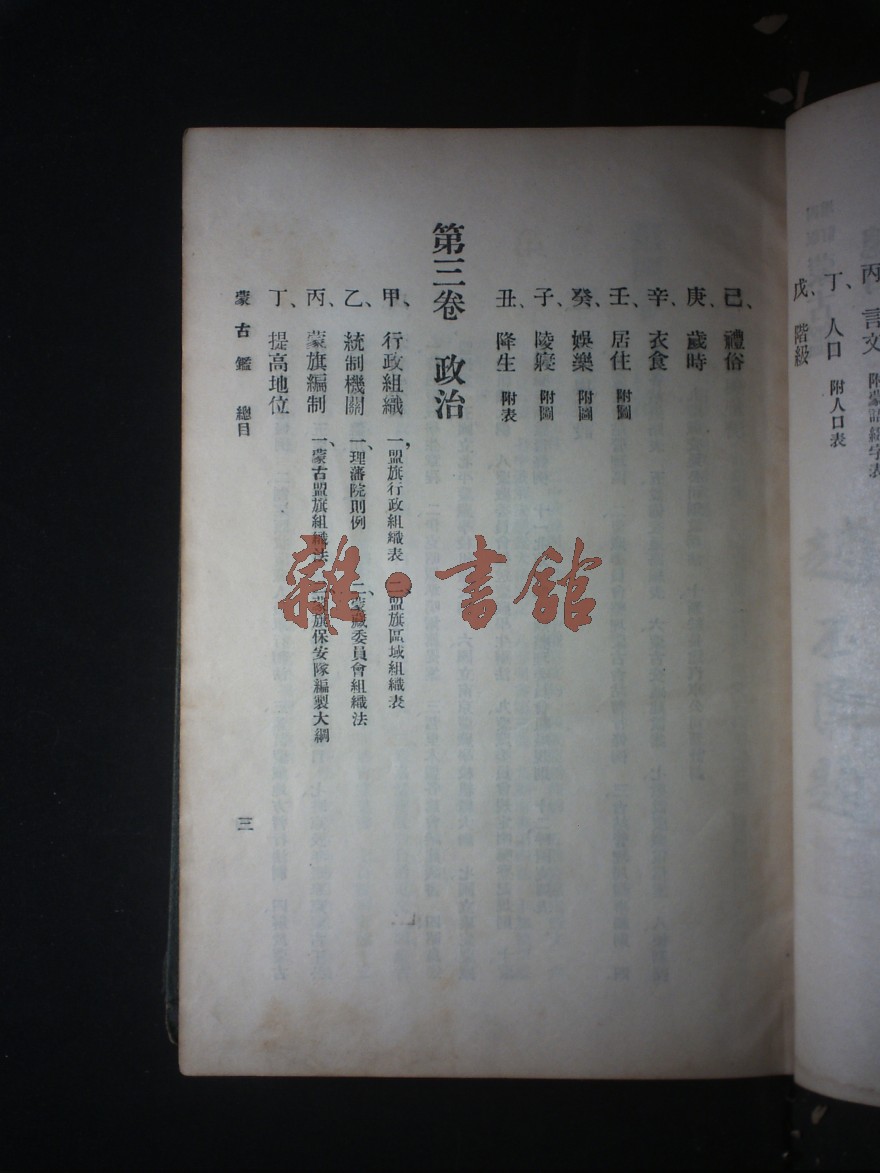 丙、言文 附蒙語綴字表
丁、人口 附人口表
戊、階級
己、禮俗
庚、歲時
辛、衣食
壬、居住 附圖
癸、娛樂 附圖
子、陵寢 附圖
丑、降生 附表
第三卷 政治
甲、行政組織 一、盟旗行政組織表 二、盟旗區域組織表
乙、統制機關 一、理藩院則例 二、蒙藏委員會組織法
丙、蒙旗編制 一、蒙古盟旗組織法 二、蒙旗保安隊編製大綱
丁、提高地位
蒙古鑑 總目
三
雜·書館